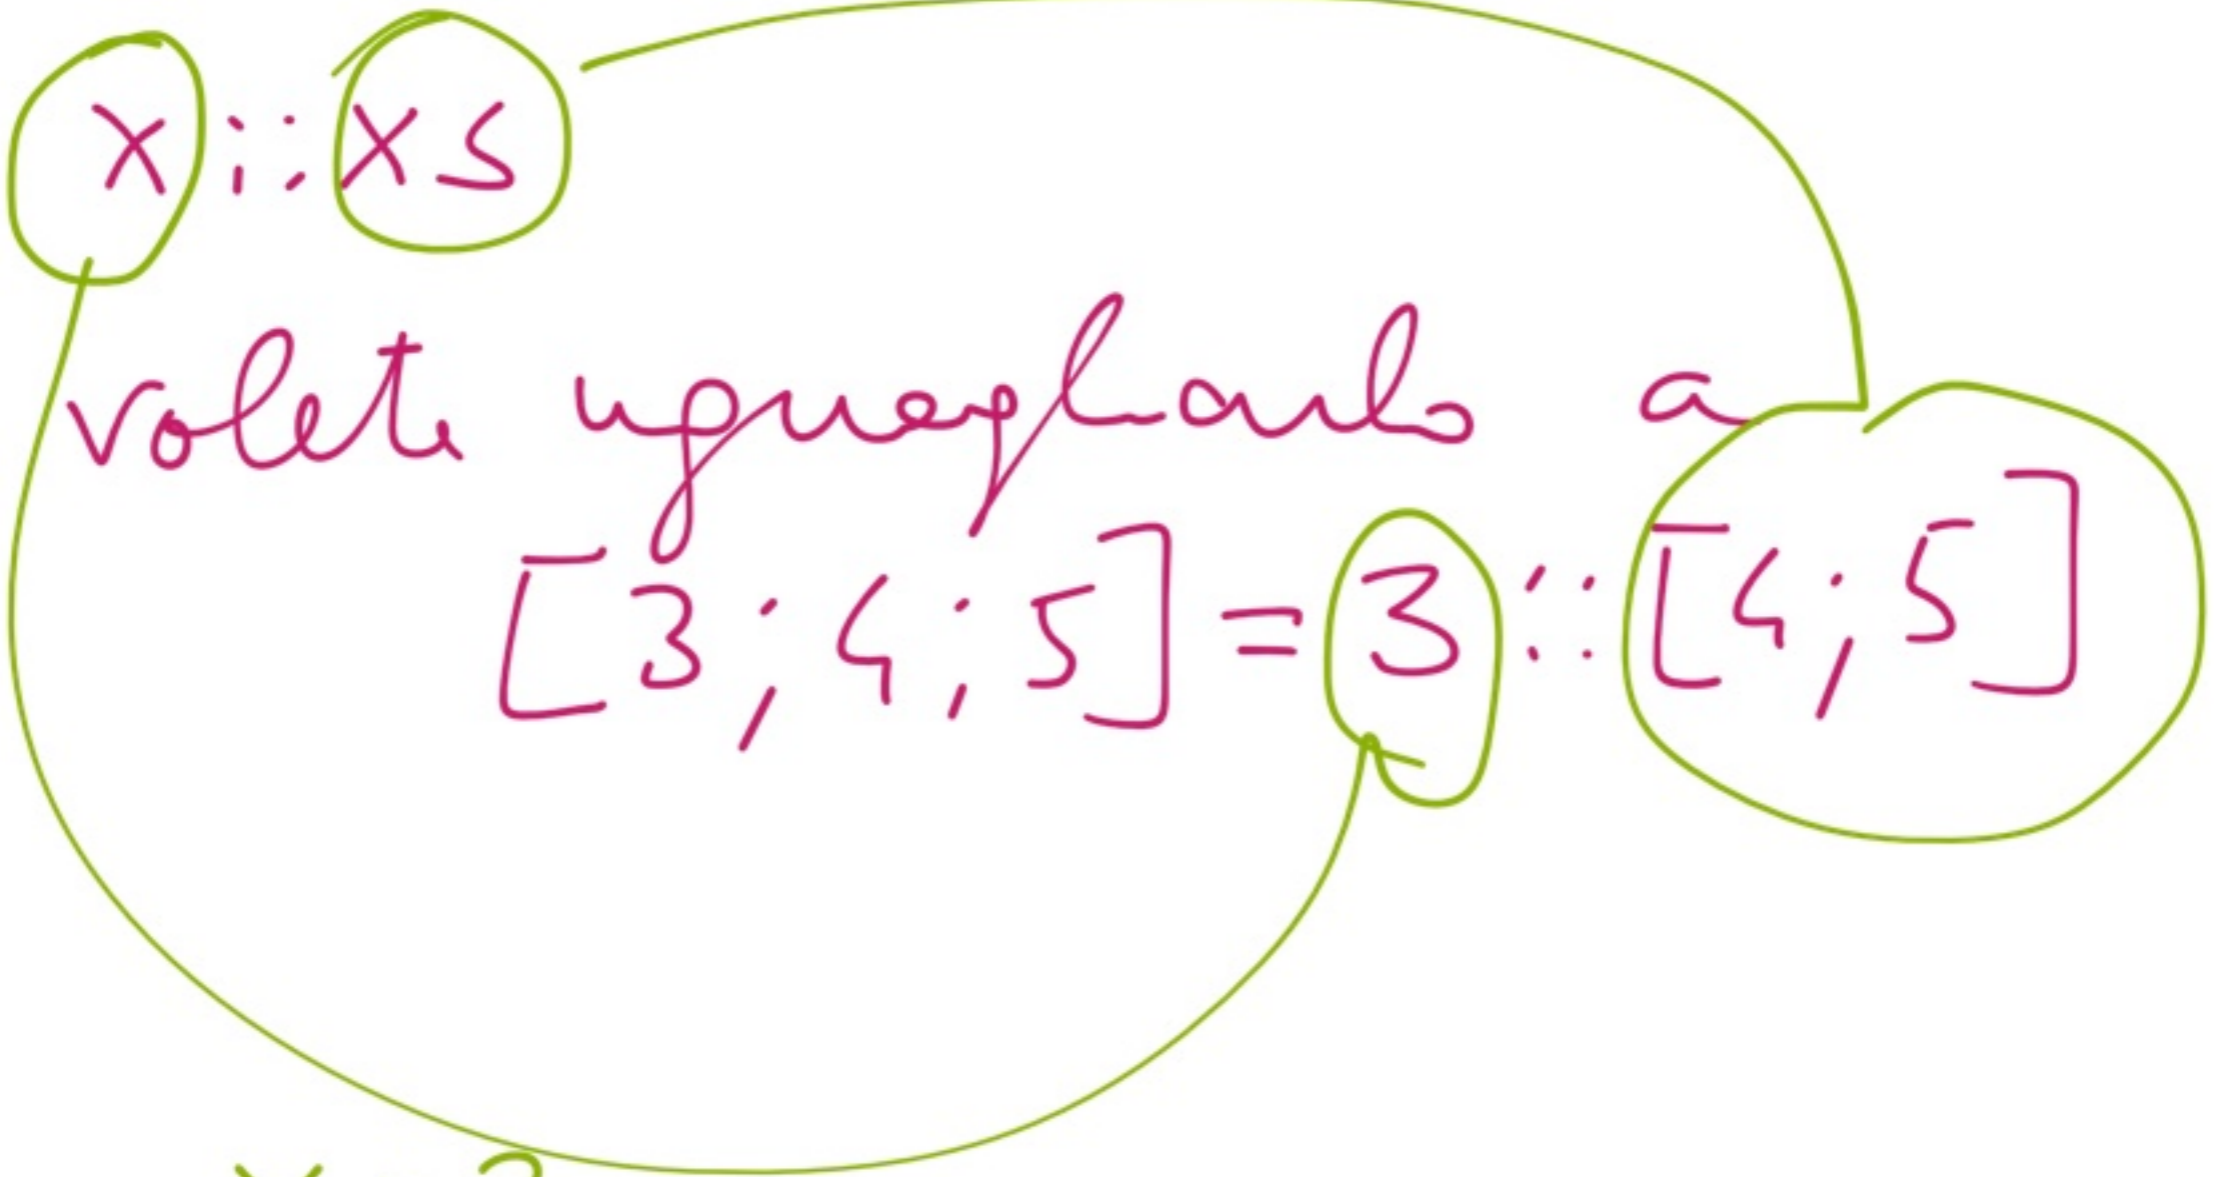 x::xs
volete uguagliarlo a
[3;4;5]=3::[4;5]